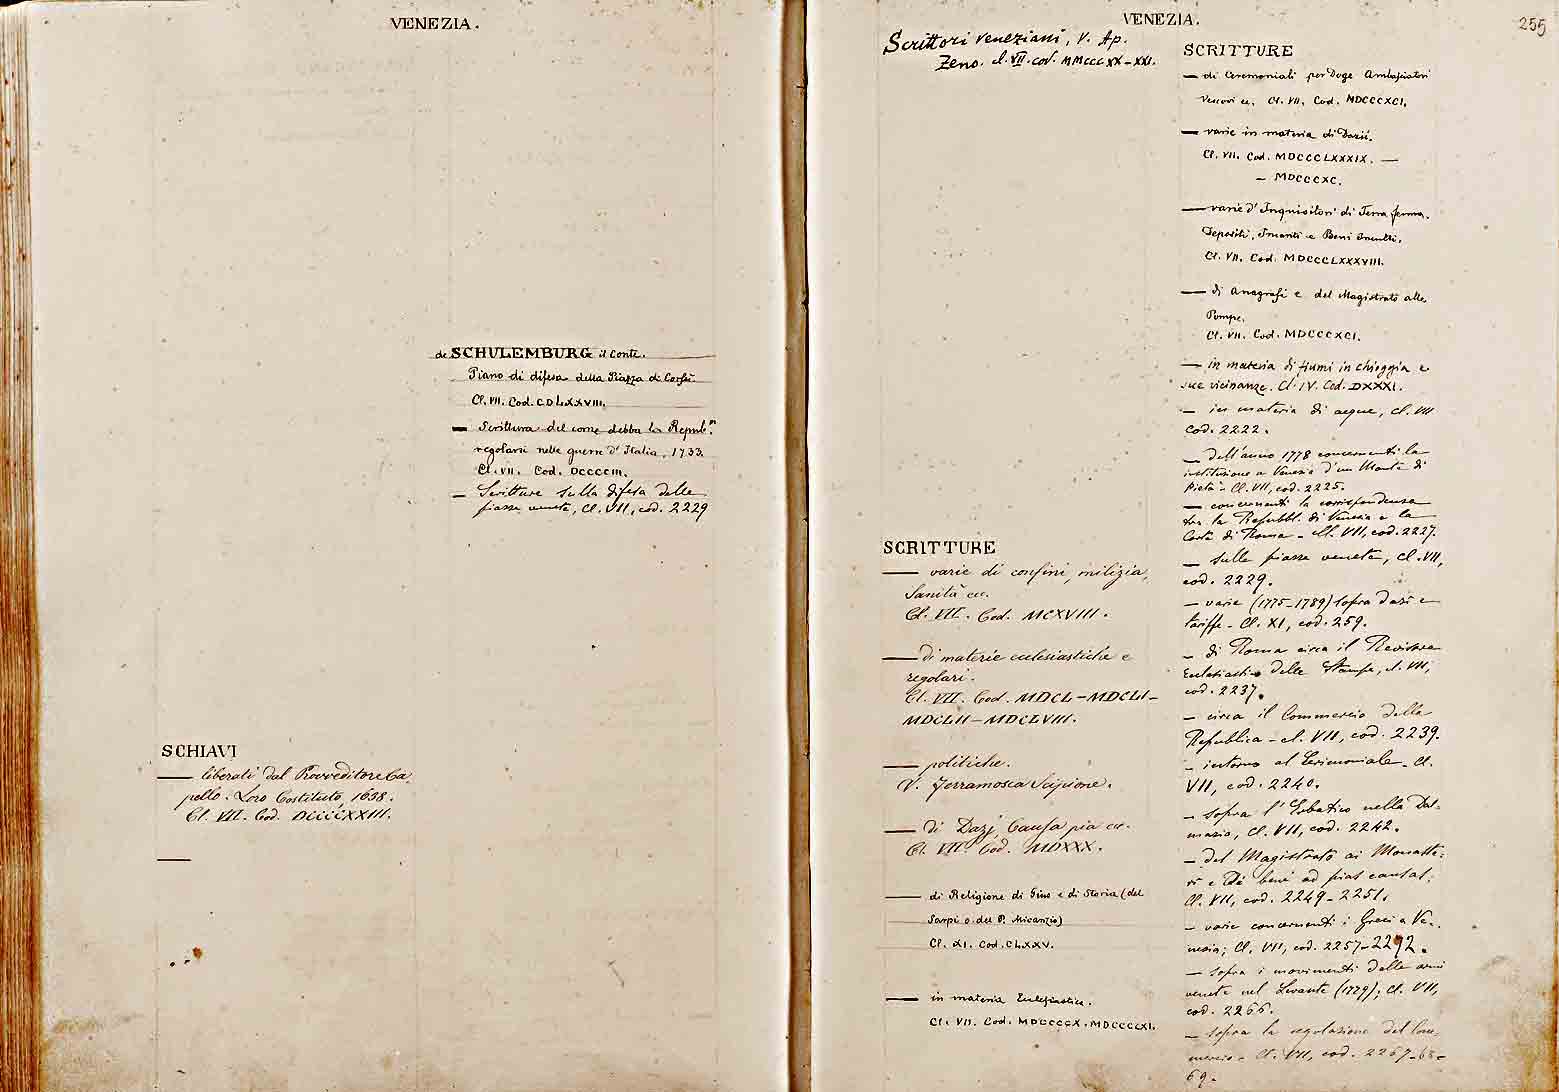 VENEZIA.
SCHIAVI
— liberati dal Provveditore Ca
pello. Loro Costituto, 1638.
Cl. VII. Cod. DCCCCXXIII.
—
de SCHULEMBURG il Conte.
Piano di difesa della Piazza di Corfù
Cl. VII. Cod. CDLXXVIII.
— Scrittura del come debba la Repubᶜᵃ
regolarsi nelle guerre d'Italia, 1733.
Cl. VII. Cod. DCCCCIII.
— Scritture sulla difesa delle
piazze venete, Cl. VII, cod. 2229
VENEZIA.
255
Scrittori veneziani, V. Ap.
Zeno. cl. VII. cod. MMCCCXX-XXI.
SCRITTURE
— varie di confini, milizia,
Sanità ec.
Cl. VII. Cod. MCXVIII.
— di materie ecclesiastiche e
regolari.
Cl. VII. Cod. MDCL-MDCLI-
MDCLII-MDCLVIII.
— politiche.
V. Ferramosca Scipione.
— di Dazj, Causa pia ec.
Cl. VII. Cod. MDXXX.
— di Religione di Gius e di Storia (del
Sarpi o del P. Micanzio)
Cl. XI. Cod. CLXXV.
— in materia Eclesiastica.
Cl. VII. Cod. MDCCCCX. MDCCCCXI.
SCRITTURE
— di Ceremoniali per Doge Ambasciatori
Vescovi ec. Cl. VII. Cod. MDCCCXCI.
— varie in materia di Dazii.
Cl. VII. Cod. MDCCCLXXXIX. —
— MDCCCXC.
— varie d'Inquisitori di Terra ferma.
Depositi, e Beni Inculti.
Cl. VII. Cod. MDCCCLXXXVIII.
— di Anagrafi e del Magistrato alle
Pompe.
Cl. VII. Cod. MDCCCXCI.
— in materia di fiumi in chioggia e
sue vicinanze. Cl. IV. Cod. DXXXI.
— in materia di acque, cl. VII
cod. 2222.
— dell'anno 1778 concernenti la
istituzione a Venezia d'un Monte di
Pietà - Cl. VII, cod. 2225.
— concernenti la corrispondenza
tra la Repubbl. di Venezia e la
Corte di Roma - Cl. VII, cod. 2227.
— sulle piazze venete, Cl. VII,
cod. 2229.
— varie (1775-1789) sopra dazi e
tariffe - Cl. XI, cod. 259.
— di Roma circa il Revisore
Ecclesiastico delle Stampe, cl. VII,
cod. 2237.
— circa il Commercio della
Repubblica - cl. VII, cod. 2239.
— intorno al Cerimoniale - Cl.
VII, cod. 2240.
— sopra l'Erbatico nella Dal-
mazia, Cl. VII, cod. 2242.
— del Magistrato ai Monaste-
ri e de' beni ad pias causas;
Cl. VII, cod. 2249-2251.
— varie concernenti i Greci a Ve-
nezia; Cl. VII, cod. 2257-2292.
— sopra i movimenti delle armi
venete nel Levante (1729); Cl. VII,
cod. 2266.
— sopra la regolazione del Com-
mercio - Cl. VII, cod. 2267-68-
69.